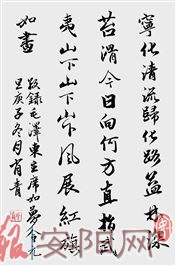 寧化清流歸化路隘林深
苔滑今日向何方直指武
夷山下山下山下風展紅旗
如畫
敬錄毛澤東主席如夢令元
旦庚子冬月肖青
安阳网